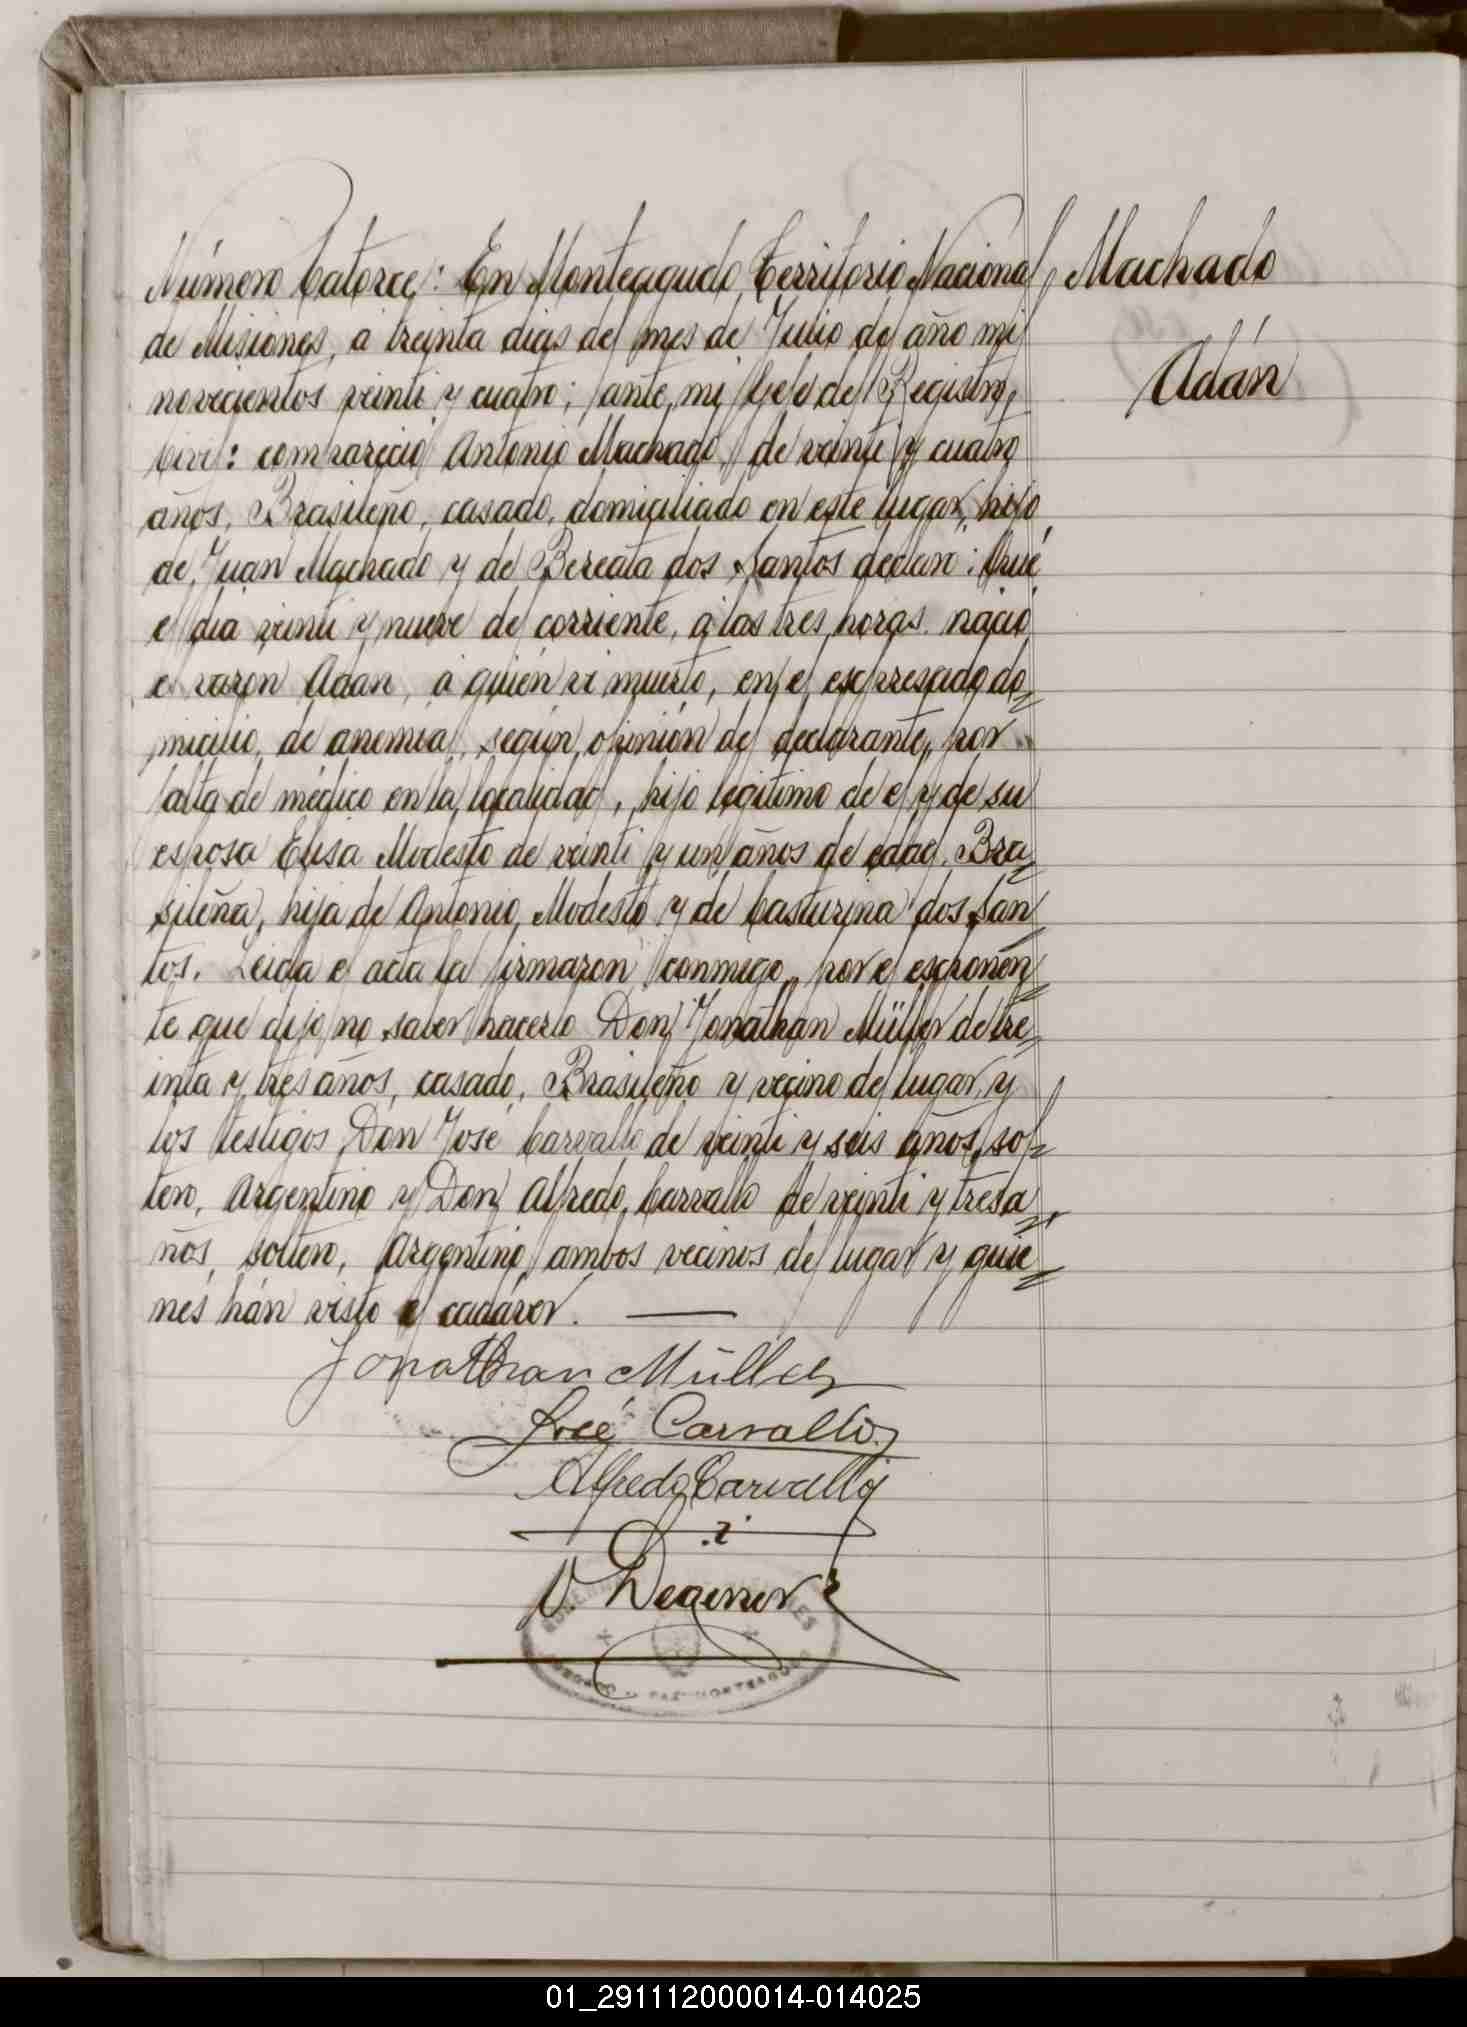 Número Catorce: En Monteagudo, Territorio Nacional
de Misiones, á treinta dias del mes de Julio del año mil
novecientos veinti y cuatro; ante mi Jefe del Registro
Civil: compareció Antonio Machado, de veinti y cuatro
años, Brasileño, casado, domiciliado en este lugar, hijo
de Juan Machado y de Bereata dos Santos declaró: Qué
el dia veinti y nueve del corriente, á las tres horas nació
el varon Adan, á quién vi muerto, en el espresado do=
micilio, de anemia, según opinión del declarante, por
falta de médico en la localidad, hijo legitimo de el y de su
esposa Elisa Modesto de veinti y un años de edad, Bra=
sileña, hija de Antonio Modesto y de Casturina dos San=
tos. Leida el acta la firmaron conmigo, por el esponen=
te que dijo no saber hacerlo Don Jonathan Müller de tre=
inta y tres años, casado, Brasileño y vecino del lugar, y
los testigos Don José Carvallo de veinti y seis años, sol=
tero, Argentino y Don Alfredo Carvallo de veinti y tres a=
ños, soltero, Argentino, ambos vecinos del lugar y quie=
nes hán visto el cadáver.
Machado
Adán
Jonathan Müller
José Carvallo
Alfredo Carvallo
V. Degener
01_291112000014-014025